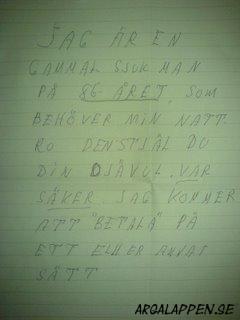 JAG ÄR EN
GAMMAL SJUK MAN
PÅ 86-ÅRET, SOM
BEHÖVER MIN NATT-
RO DENSTJÄL DU
DIN DJÄVUL, VAR
SÄKER JAG KOMMER
ATT "BETALA" PÅ
ETT ELLER ANNAT
SÄTT
ARGALAPPEN.SE